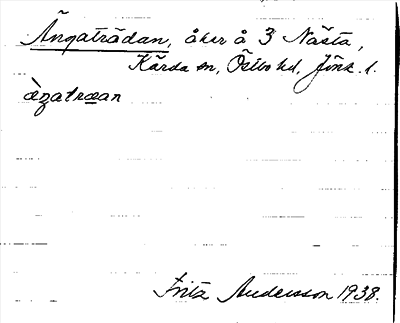 Ängaträdan, åker å 3 Nästa,
Kärda sn, Östbo hd, Jönk. l.
àzatræan
Fritz Andersson 1938.